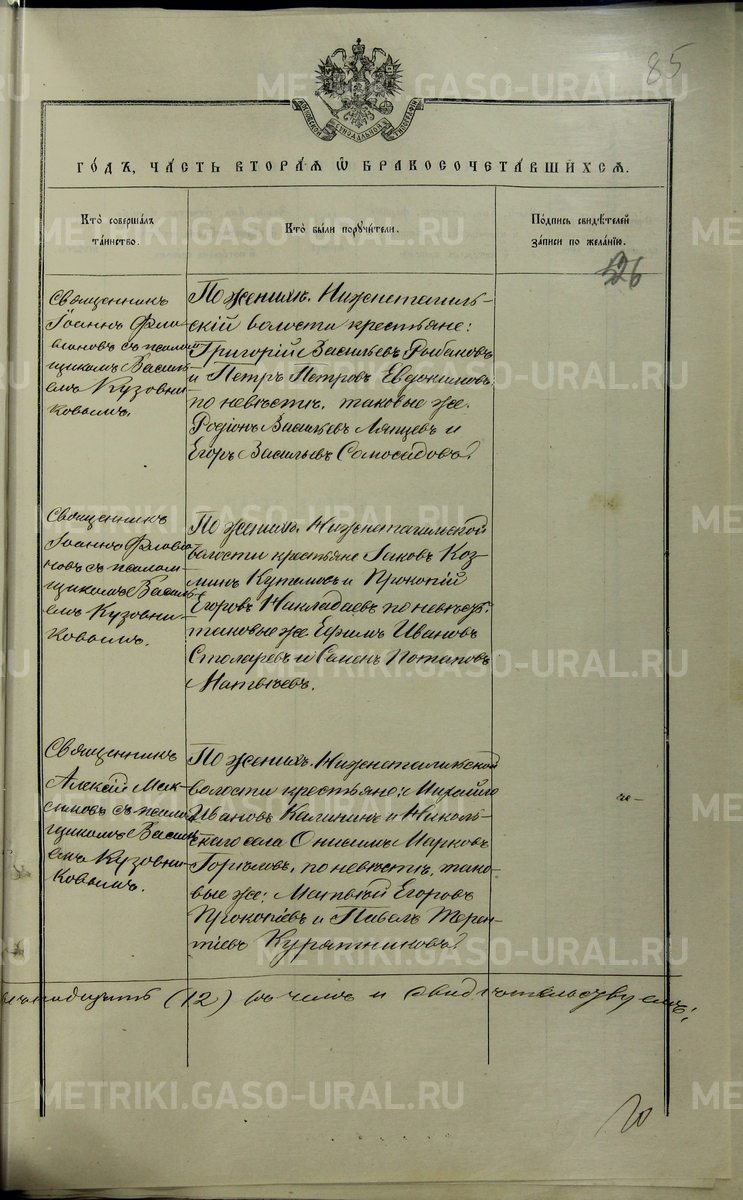 85
МОСКОВСКОЙ СИНОДАЛЬНОЙ ТИПОГРАФІИ
ГО́ДЪ, ЧА́СТЬ ВТОРА́Я Ѽ БРАКОСОЧЕТА́ВШИХСЯ.
Кто̀ соверша́лъ
та́инство.
Кто̀ бы́ли порꙋчи́тели.
По́дпись свидѣ́телей
за́писи по жела́нїю.
526
Священникъ
Іоаннъ Флавіановъ съ псалом
щикомъ Василь-
емъ Кузовни-
ковымъ.
По женихѣ. Нижнетагиль-
ской волости крестьяне:
Григорій Васильевъ Рыбаковъ
и Петръ Петровъ Евдокимовъ
по невѣстѣ, таковые же.
Родіонъ Васильевъ Ляпцевъ и
Егоръ Васильевъ Самосадовъ.
Священникъ
Іоаннъ Флавіа
новъ съ псалом-
щикомъ Василь-
емъ Кузовни-
ковымъ.
По женихѣ. Нижнетагильской
волости крестьяне Іаковъ Коз-
минъ и Прокопій
Егоровъ Накладаевъ по невѣстѣ
таковые же Ефимъ Ивановъ
Столяревъ и Семенъ Потаповъ
Матвѣевъ.
Священникъ
Алексій Мак-
симовъ съ псалом-
щикомъ Василь-
емъ Кузовни-
ковымъ.
По женихѣ. Нижнетагильской
волости крестьяне: Михаилъ
Ивановъ Калининъ и Николь-
скаго села Онисимъ Марковъ
по невѣстѣ, тако-
вые же: Матвѣй Егоровъ
Прокопіевъ и Павелъ Терен-
тіевъ Курятниковъ.
(12) въ чемъ и свидѣтельствуемъ:
METRIKI.GASO-URAL.RU